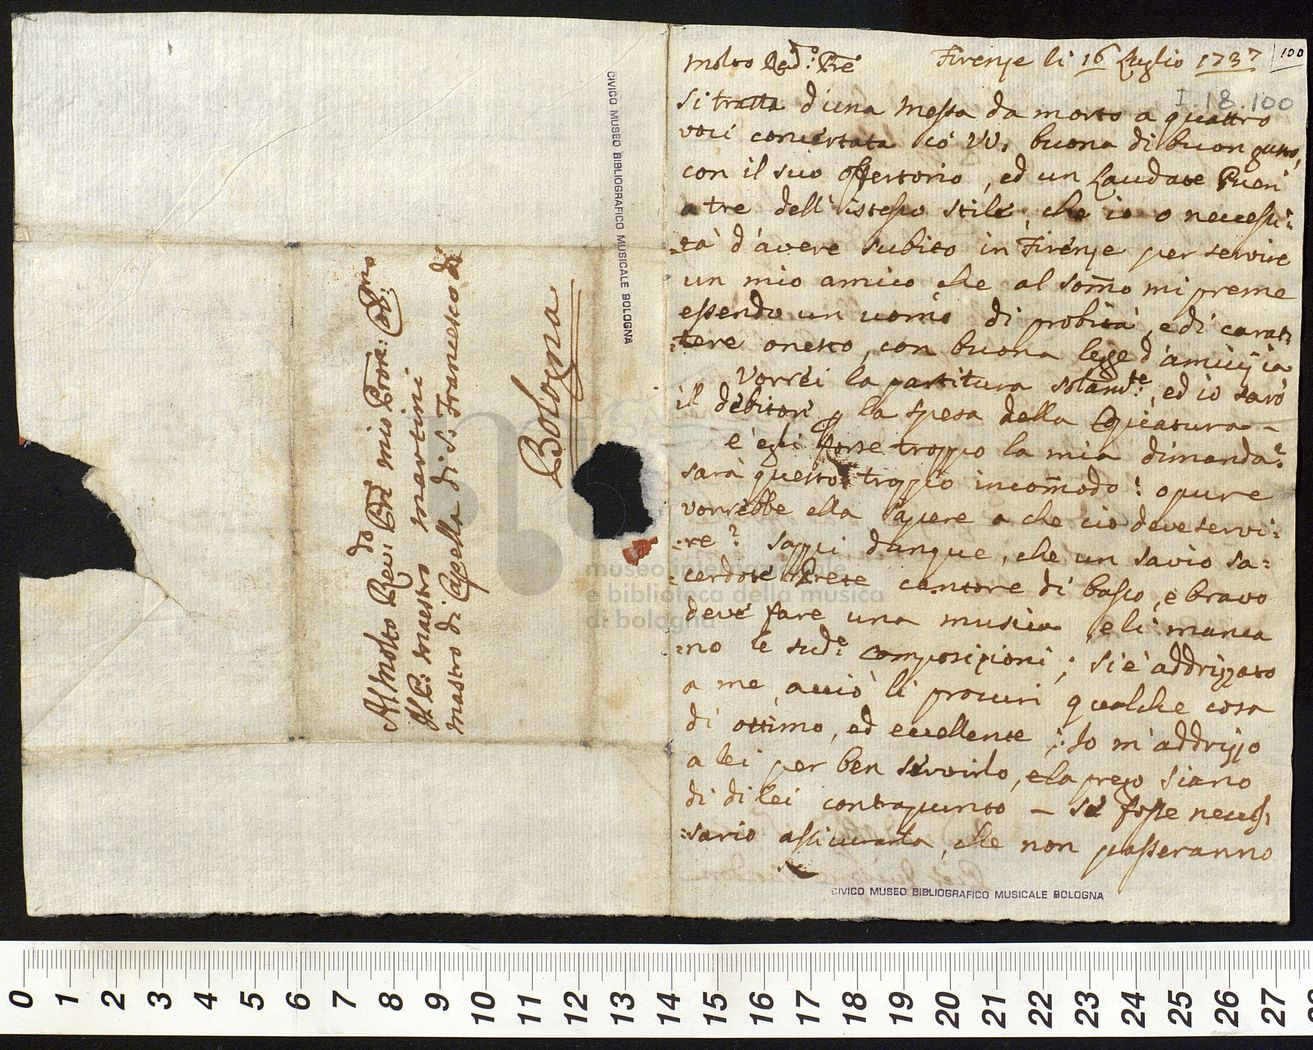 Al Molto Rev:do Pre mio Pron: Col:mo
Il P: Maestro Martini
Mastro di Capella di S. Francesco di
Bologna
CIVICO MUSEO BIBLIOGRAFICO MUSICALE BOLOGNA
100
Molto Red:o Pre Firenze li 16 Luglio 1737
I.18.100
Si tratta d'una Messa da morto a quattro
voci concertata có VV. buona di buon gusto,
con il suo offertorio, ed un Laudate Pueri
a tre dell'istesso stile, che io o necessi:
:tà d'avere subito in Firenze per servire
un mio amico che al som̃o mi preme
essendo un uomo di probità, e di carat:
:tere onesto, con buona legge d'amicizia
Vorrei la partitura solam:te, ed io sarò
il debitore p la spesa della Copiatura –
e egli forse troppo la mia dimanda?
sarà questo troppo incom̃odo? opure
vorrebbe ella sapere a che ciò deve servi:
:re? Sappi dunque, che un savio sa:
:cerdote Prete cantore di basso, e bravo
deve fare una musica, e li manca
:no le sud:e composizioni; si è addrizzato
a me, acciò li procuri qualche cosa
di ottimo, ed eccellente; Io m'addrizzo
a lei per ben servirlo, e la prego siano
di di lei contrapunto – se fosse neces:
:sario assicurarla, che non passeranno
CIVICO MUSEO BIBLIOGRAFICO MUSICALE BOLOGNA
museo internazionale
e biblioteca della musica
di bologna
0 1 2 3 4 5 6 7 8 9 10 11 12 13 14 15 16 17 18 19 20 21 22 23 24 25 26 27